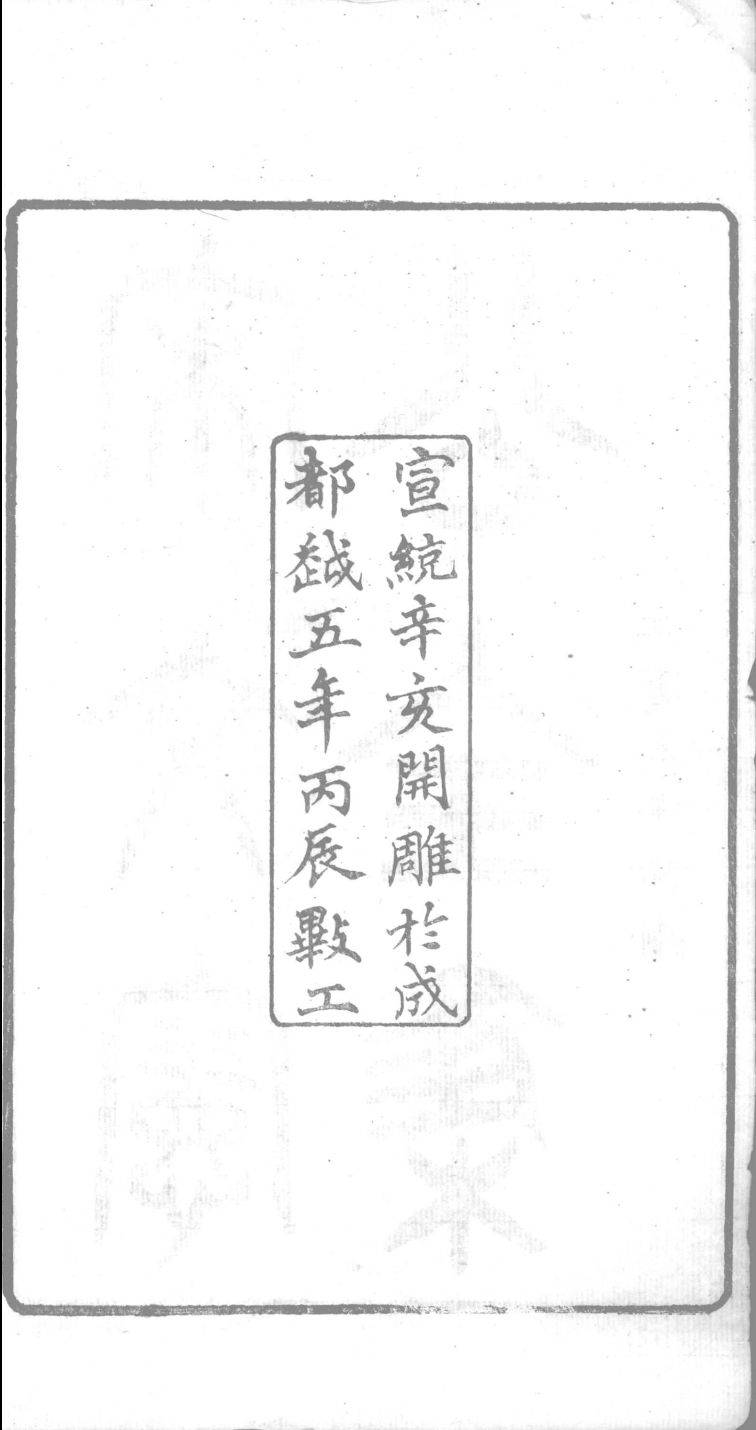 宣統辛亥開雕於成
都越五年丙辰斁工